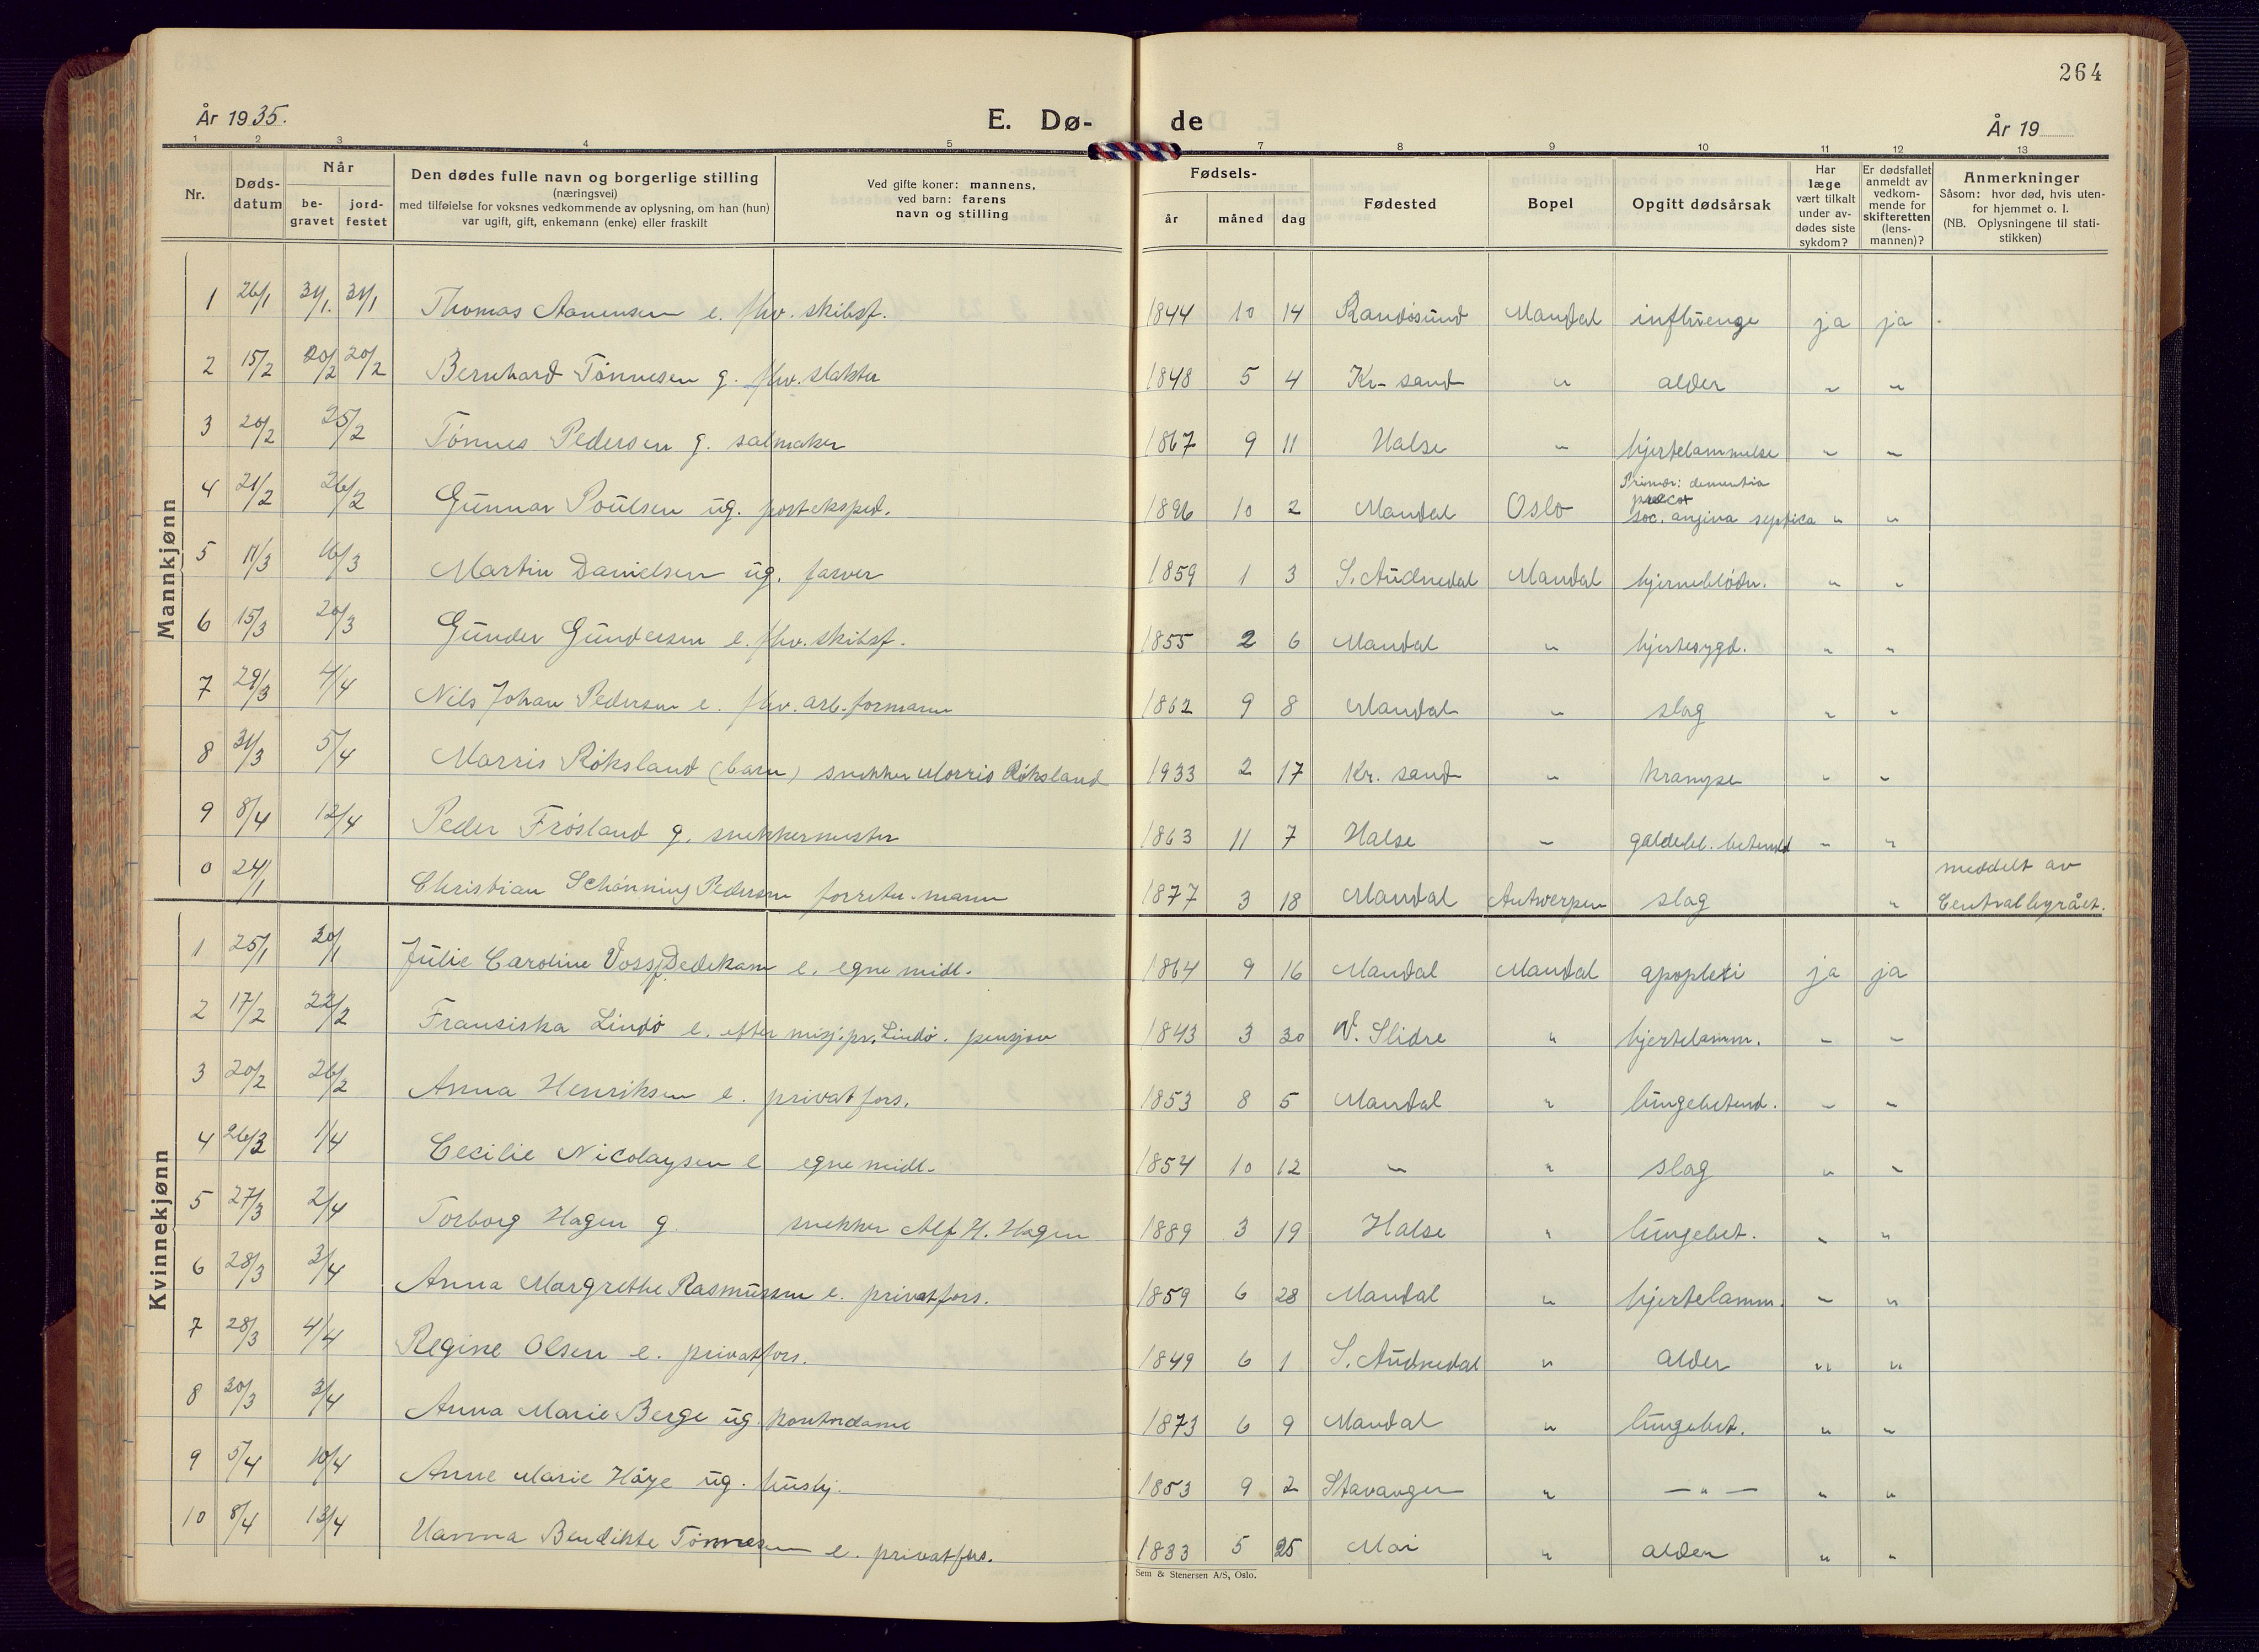 264
År 1935.
E. Dø-
de
År 19
1 2 3 4 5 7 8 9 10 11 12 13
Nr.
Døds-
datum
Når
be-
gravet
jord-
festet
Den dødes fulle navn og borgerlige stilling
(næringsvei)
med tilføielse for voksnes vedkommende av oplysning, om han (hun)
var ugift, gift, enkemann (enke) eller fraskilt
Ved gifte koner: mannens,
ved barn: farens
navn og stilling
Fødsels-
år måned dag
Fødested
Bopel
Opgitt dødsårsak
Har
læge
vært tilkalt
under av-
dødes siste
sykdom?
Er dødsfallet
anmeldt av
vedkom-
mende for
skifteretten
(lens-
mannen)?
Anmerkninger
Såsom: hvor død, hvis uten-
for hjemmet o. l.
(NB. Oplysningene til stati-
stikken)
Mannkjønn
1 26/1 31/1. 31/1 Thomas Aanensen e. fhv. skibsf. 1844 10 14 Randøsund Mandal influenge ja ja
2 15/2 20/2 20/2 Bernhard Tønnesen g. fhv. slakter 1848 5 4 Kr-sand " alder " "
3 20/2 25/2 Tønnes Pedersen g. salmaker 1867 9 11 Halse " hjertelammelse " "
4 21/2 26/2 Gunnar Poulsen ug. postekspd. 1896 10 2 Mandal Oslo Primær: dementia
precox
soc. angina septica " "
5 11/3 16/3 Martin Danielsen ug. farver 1859 1 3 S. Audnedal Mandal hjerneblødn. " "
6 15/3 20/3 Gunder Gundersen e. fhv. skibsf. 1855 2 6 Mandal " hjertesygd. " "
7 29/3 4/4 Nils Johan Pedersen e. fhv. arb.formann 1862 9 8 Mandal " slag " "
8 31/3 5/4 Morris Røksland (barn) snekker Morris Røksland 1933 2 17 Kr. sand " krampe " "
9 8/4 12/4 Peder Frøsland g. snekkermester 1863 11 7 Halse " galdebl. betend " "
0 24/1 Christian Schønning Pedersen forretn.mann 1877 3 18 Mandal Antwerpen slag " meddelt av
Centralbyrået.
Kvinnekjønn
1 25/1 30/1 Julie Caroline Voss f. Dedekam e. egne midl. 1864 9 16 Mandal Mandal apoplexi ja ja
2 17/2 22/2 Fransiska Lindø e. efter misj.pr. Lindø. pensjon 1843 3 30 V. Slidre " hjertelamm. " "
3 20/2 26/2 Anna Henriksen e. privat fors. 1853 8 5 Mandal " lungebetend. " "
4 26/3 1/4 Cecilie Nicolaysen e egne midl. 1854 10 12 " " slag " "
5 27/3 2/4 Torborg Hagen g. snekker Alf H. Hagen 1889 3 19 Halse " lungebet. " "
6 28/3 3/4 Anna Margrethe Rasmussen e. privat fors. 1859 6 28 Mandal " hjertelamm. " "
7 28/3 4/4 Regine Olsen e. privat fors. 1849 6 1 S. Audnedal " alder " "
8 30/3 3/4 Anna Marie Berge ug. kontordame 1873 6 9 Mandal " lungebet. " "
9 5/4 10/4 Anne Marie Håye ug. hushj. 1853 9 2 Stavanger " — " — " "
10 8/4 13/4 Hanna Bendikte Tønnesen e. privat fors. 1833 5 25 Moi " alder " "
Sem & Stenersen A/S, Oslo.